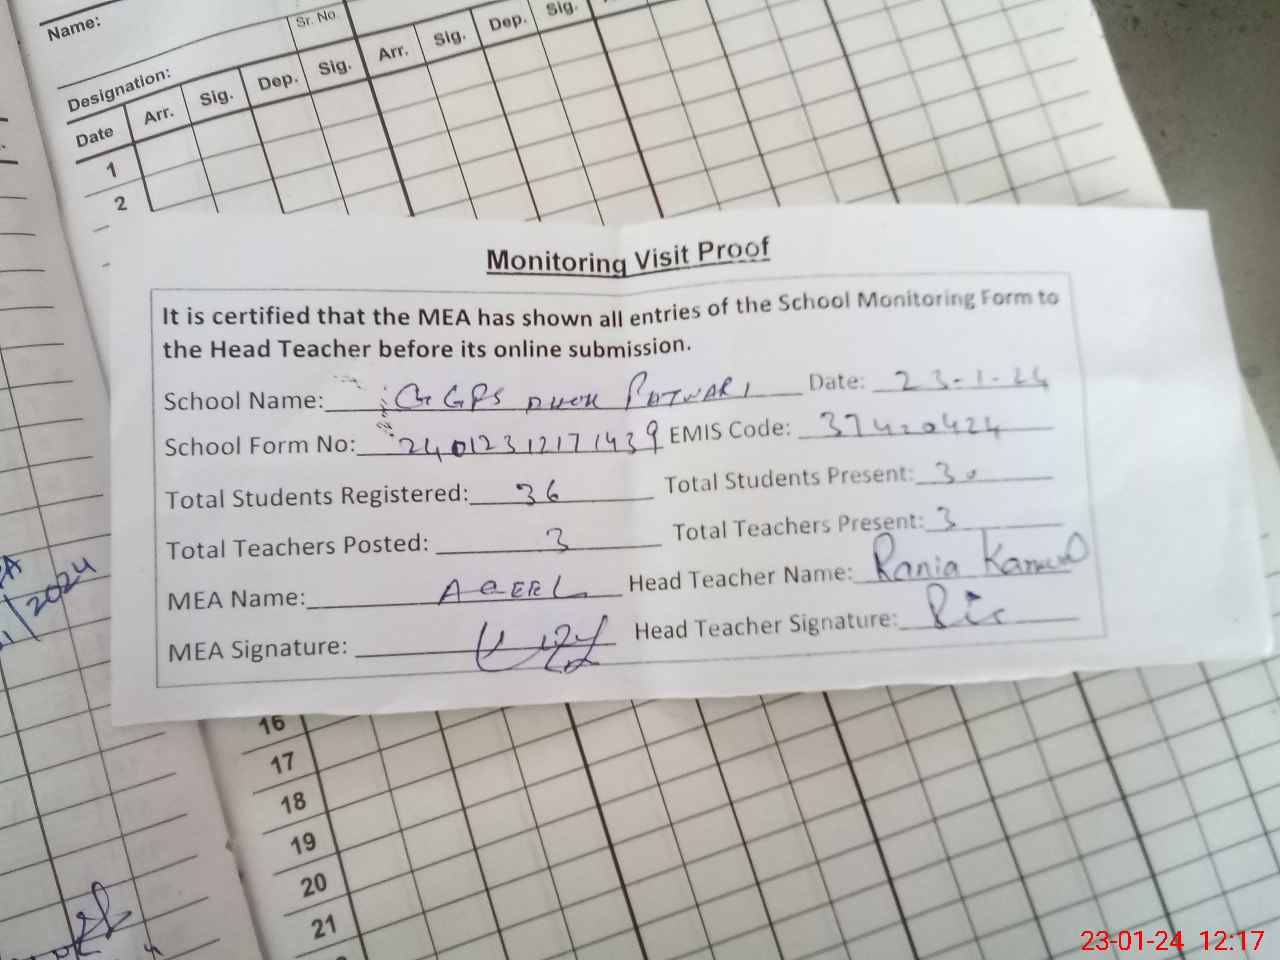 Name:
Sr. No.
Designation:
Date Arr. Sig. Dep. Sig. Arr. Sig. Dep. Sig.
1
2
Monitoring Visit Proof
It is certified that the MEA has shown all entries of the School Monitoring Form to
the Head Teacher before its online submission.
School Name: GGPS DHOK PATWARI Date: 23-1-24
School Form No: 24012312171439 EMIS Code: 37420424
Total Students Registered: 36 Total Students Present: 30
Total Teachers Posted: 3 Total Teachers Present: 3
MEA Name: AQEEL Head Teacher Name: Rania Kanwal
MEA Signature: Head Teacher Signature:
/2024
16
17
18
19
20
21
23-01-24 12:17